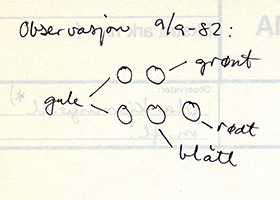 Observasjon 9/9-82:
grønt
gule
rødt
blått